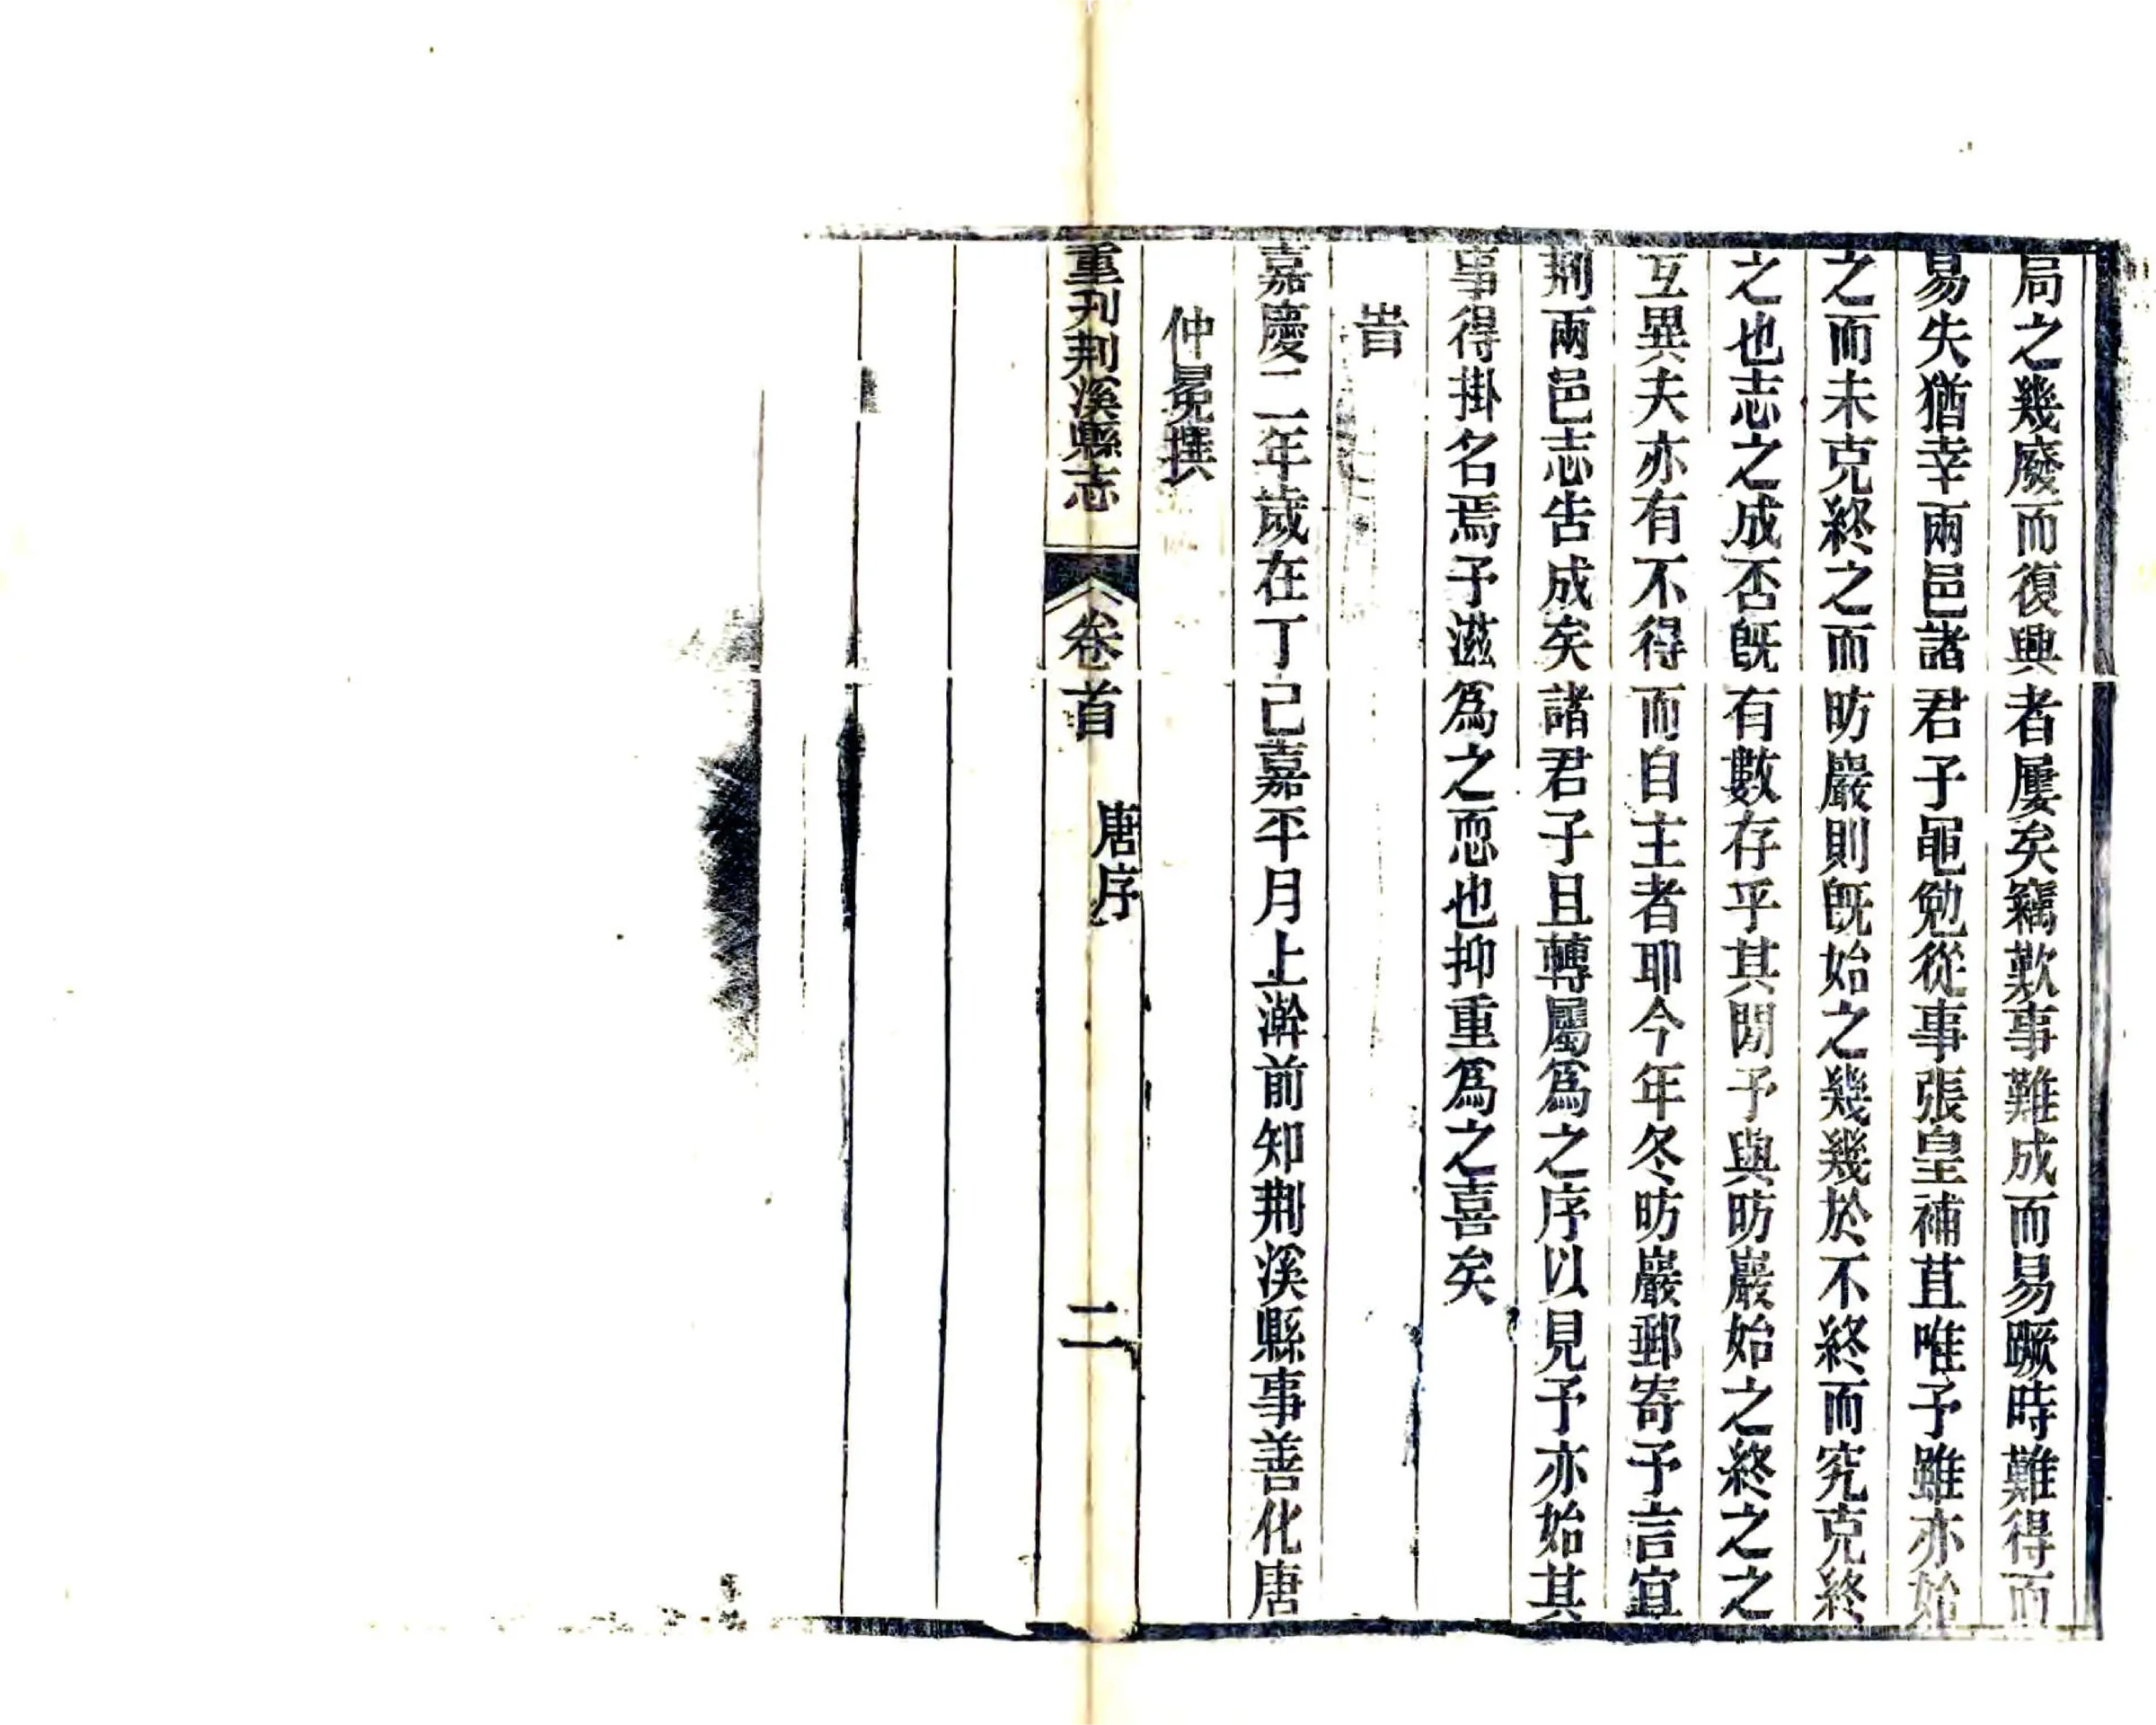 局之幾廢而復興者屢矣竊歎事難成而易蹶時難得而
易失猶幸兩邑諸君子黽勉從事張皇補苴唯予雖亦始
之而未克終之而昉巖則旣始之幾幾於不終而究克終
之也志之成否旣有數存乎其閒予與昉巖始之終之之
互異夫亦有不得而自主者耶今年冬昉巖郵寄予言宜
荆兩邑志告成矣諸君子且轉屬爲之序以見予亦始其
事得掛名焉予滋爲之恧也抑重爲之喜矣
旹
嘉慶二年歲在丁巳嘉平月上澣前知荆溪縣事善化唐
仲冕撰
重刊荆溪縣志 卷首 唐序 二